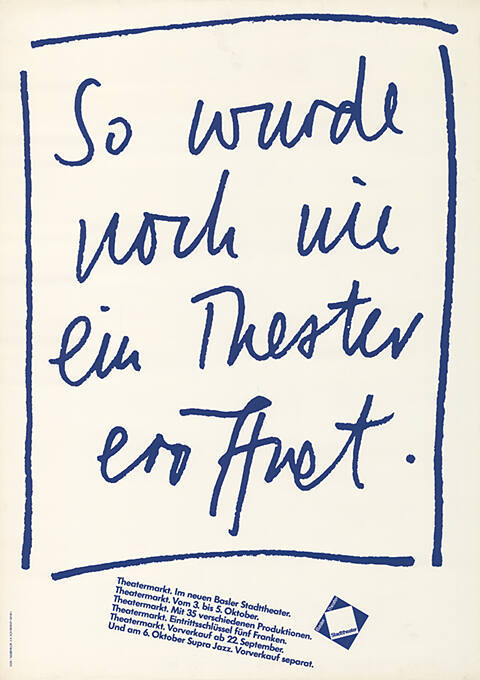 So wurde
noch nie
ein Theater
eröffnet.
Theatermarkt. Im neuen Basler Stadttheater.
Theatermarkt. Vom 3. bis 5. Oktober.
Theatermarkt. Mit 35 verschiedenen Produktionen.
Theatermarkt. Eintrittsschlüssel fünf Franken.
Theatermarkt. Vorverkauf ab 22. September.
Und am 6. Oktober Supra Jazz. Vorverkauf separat.
Stadttheater